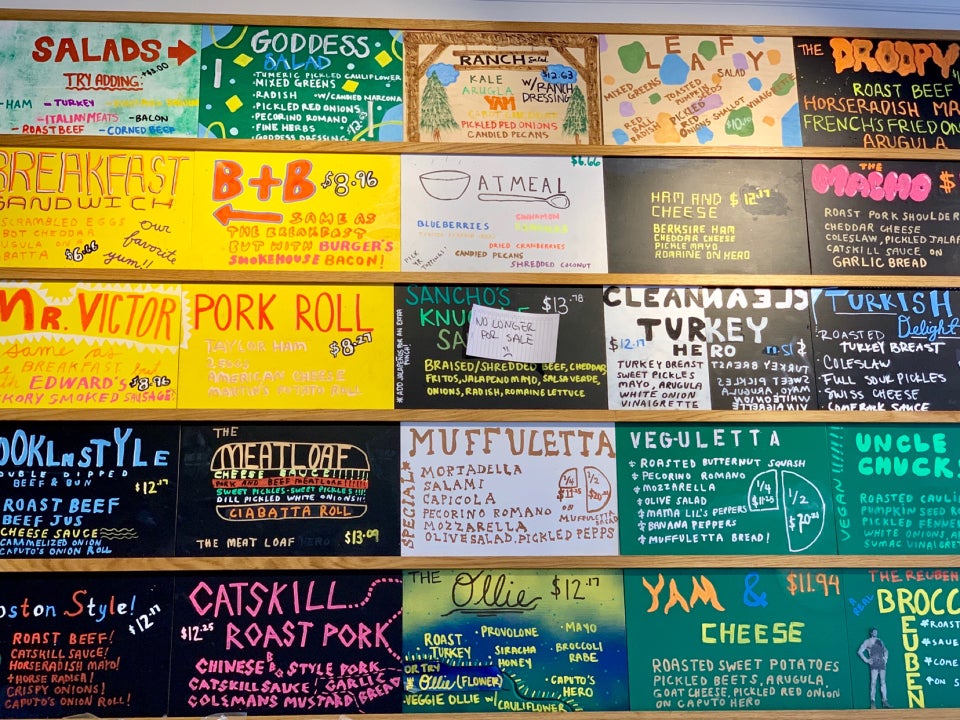 SALADS
TRY ADDING:
HAM - TURKEY
- ITALIAN MEATS - BACON
- ROAST BEEF - CORNED BEEF
GODDESS
SALAD
• TUMERIC PICKLED CAULIFLOWER
• MIXED GREENS
• RADISH • W/CANDIED MARCONA
• PICKLED RED ONIONS
• PECORINO ROMANO
• FINE HERBS
• GODDESS DRESSING
RANCH Salad
$12.63
KALE
ARUGLA
YAM
W/RANCH
DRESSING
CABOT CHEDDAR
PICKLED RED ONIONS
CANDIED PECANS
LEAFY
SALAD
MIXED GREENS
TOASTED PUMPKIN
RED BALL RADISH
PICKLED RED ONIONS
SHALLOT VINAIGRETTE
THE DROOPY
ROAST BEEF
HORSERADISH MA
FRENCH'S FRIED ON
ARUGULA
BREAKFAST
SANDWICH
SCRAMBLED EGGS
CABOT CHEDDAR
ARUGULA ON A
CIABATTA
$6.66
our
favorite
yum!!
B+B $8.96
SAME AS
THE BREAKFAST
BUT WITH BURGER'S
SMOKEHOUSE BACON!
$6.66
OATMEAL
BLUEBERRIES
CINNAMON
PICK YR TOPPING!
DRIED CRANBERRIES
CANDIED PECANS
SHREDDED COCONUT
HAM AND $12.17
CHEESE
BERKSIRE HAM
CHEDDAR CHEESE
PICKLE MAYO
ROMAINE ON HERO
THE
MACHO $
ROAST PORK SHOULDER
CHEDDAR CHEESE
COLESLAW, PICKLED JALAP
CATSKILL SAUCE ON
GARLIC BREAD
MR. VICTOR
same as
the BREAKFAST but
with EDWARD'S $8.96
HICKORY SMOKED SAUSAGE!
PORK ROLL
TAYLOR HAM $8.27
2 EGGS
AMERICAN CHEESE
MARTIN'S POTATO ROLL
SANCHO'S $13.78
KNUC
SA
NO LONGER
FOR SALE
* ADD JALAPEÑOS FOR AN EXTRA PUNCH!
BRAISED/SHREDDED BEEF, CHEDDAR,
FRITOS, JALAPENO MAYO, SALSA VERDE,
ONIONS, RADISH, ROMAINE LETTUCE
CLEAN CLEAN
TURKEY
HERO
$12.17
TURKEY BREAST
SWEET PICKLES
MAYO, ARUGULA
WHITE ONION
VINAIGRETTE
TURKISH
Delight
• ROASTED
TURKEY BREAST
• COLESLAW
• FULL SOUR PICKLES
• SWISS CHEESE
• COMEBACK SAUCE
OOKLNSTYLE
DOUBLE DIPPED
BEEF & BUN $12.17
ROAST BEEF
BEEF JUS
CHEESE SAUCE
CARAMELIZED ONION
CAPUTO'S ONION ROLL
THE
MEATLOAF
CHEESE SAUCE!!!!!!!
PORK AND BEEF MEATLOAF!!!
SWEET PICKLES-SWEET PICKLES!!!
DILL PICKLED WHITE ONIONS!!
CIABATTA ROLL
THE MEAT LOAF HERO $13.09
MUFFULETTA
SPECIAL*
MORTADELLA
SALAMI
CAPICOLA
PECORINO ROMANO
MOZZARELLA
OLIVE SALAD, PICKLED PEPPS
1/4
1/2
ON
MUFFULETTA
BREAD
VEG-ULETTA
* ROASTED BUTTERNUT SQUASH
* PECORINO ROMANO
* MOZZARELLA
* OLIVE SALAD
* MAMA LIL'S PEPPERS
* BANANA PEPPERS
* MUFFULETTA BREAD!
1/4
$11.25
1/2
VEGAN!!!!!
UNCLE
CHUCK
ROASTED CAULI
PUMPKIN SEED RO
PICKLED FENNEL
WHITE ONIONS
SUMAC VINAIGRET
oston Style!
$12.17
ROAST BEEF!
CATSKILL SAUCE!
HORSERADISH MAYO!
+HORSE RADISH!
CRISPY ONIONS!
CAPUTO'S ONION ROLL!
CATSKILL
$12.25 ROAST PORK
CHINESE BBQ STYLE PORK
CATSKILL SAUCE GARLIC
COLSMANS MUSTARD BREAD
THE Ollie $12.17
ROAST
TURKEY
• PROVOLONE
SIRACHA
HONEY
• MAYO
BROCCLI
RABE
OR TRY
Ollie (FLOWER)
VEGGIE OLLIE W/ CAULIFLOWER
• CAPUTO'S
HERO
YAM & $11.94
CHEESE
ROASTED SWEET POTATOES
PICKLED BEETS, ARUGULA,
GOAT CHEESE, PICKLED RED ONION
ON CAPUTO HERO
THE REUBEN
A REAL
BROCC
REUBEN
* ROAST
* SAUE
* COME
* ON S